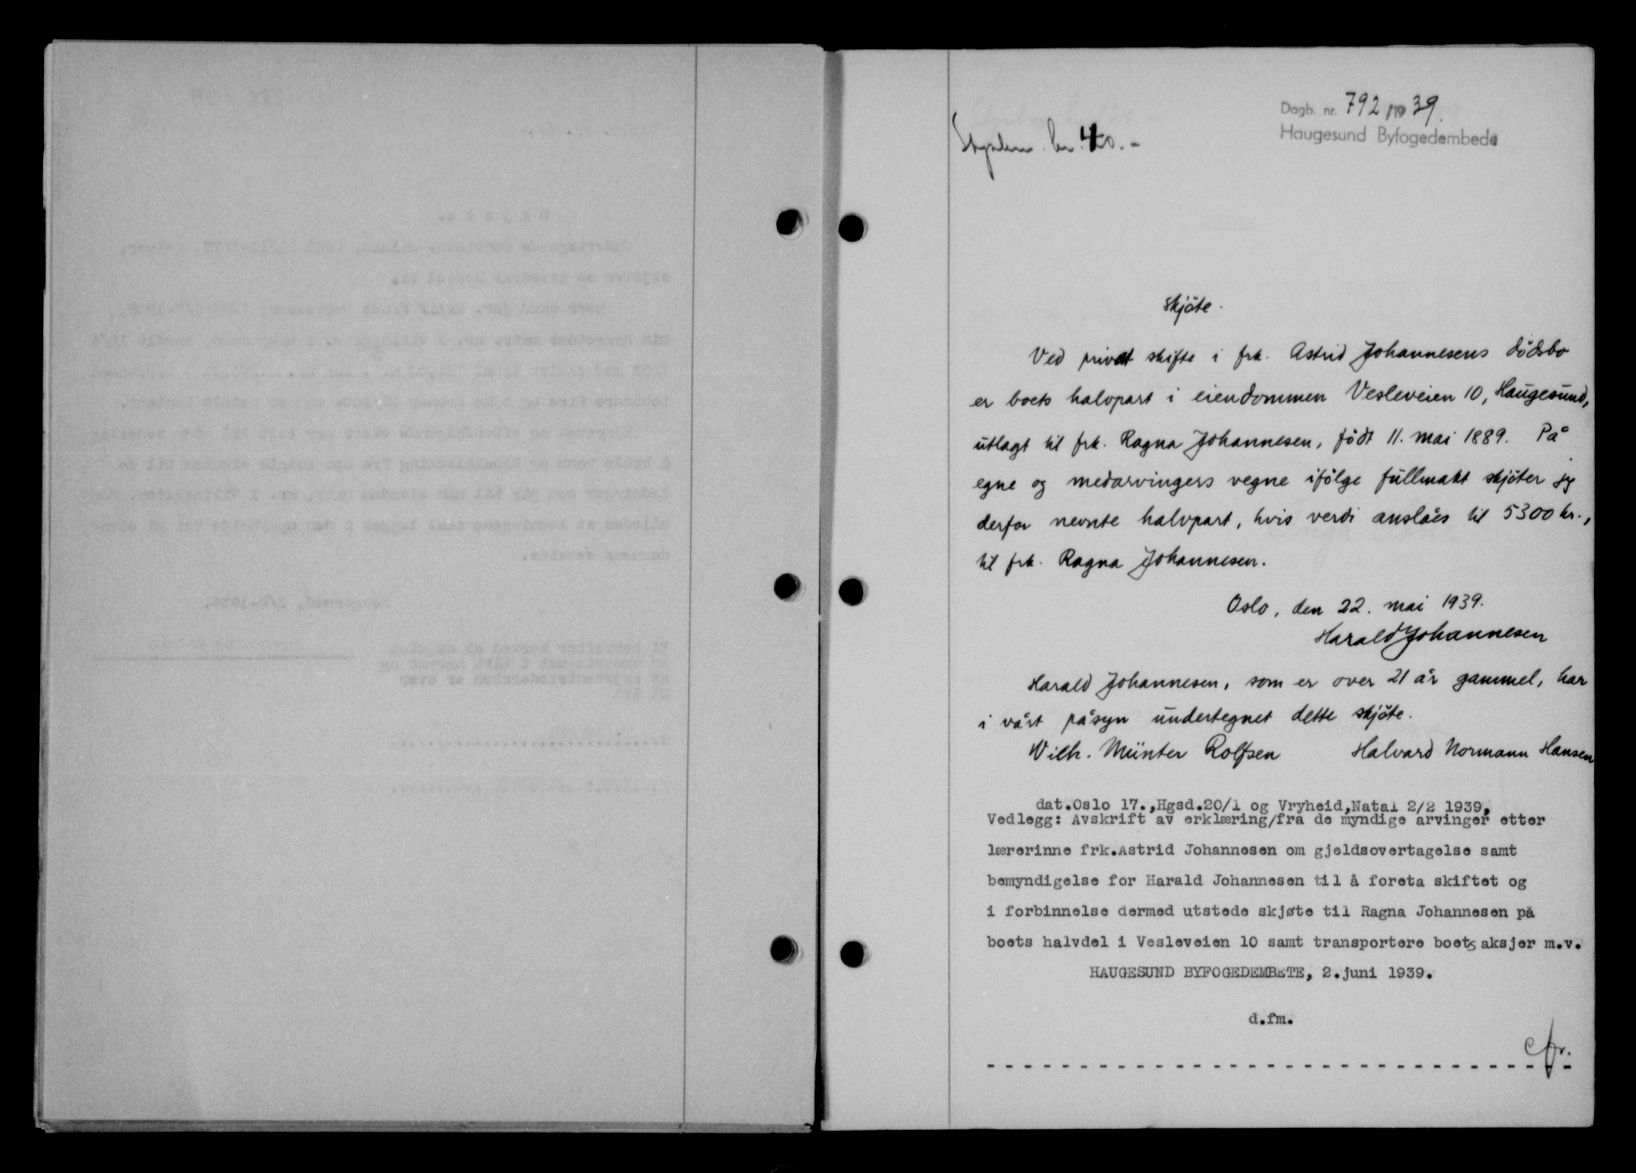 Dagb. nr. 792/1939.
Haugesund Byfogedembede
kr. 40.-
Skjöte.
Ved privat skifte i frk. Astrid Johannesens dödsbo
er boets halvpart i eiendommen Vesleveien 10, Haugesund,
utlagt til frk. Ragna Johannesen, född 11. mai 1889. På
egne og medarvingers vegne ifölge fullmakt skjöter jeg
derfor nevnte halvpart, hvis verdi anslåes til 5300 kr.,
til frk. Ragna Johannesen.
Oslo, den 22. mai 1939.
Harald Johannesen
Harald Johannesen, som er over 21 år gammel, har
i vårt påsyn undertegnet dette skjöte.
Wilh. Münter Rolfsen Halvard Normann Hansen
dat.Oslo 17.,Hgsd.20/1 og Vryheid,Natal 2/2 1939,
Vedlegg: Avskrift av erklæring/fra de myndige arvinger etter
lærerinne frk.Astrid Johannesen om gjeldsovertagelse samt
bemyndigelse for Harald Johannesen til å foreta skiftet og
i forbinnelse dermed utstede skjøte til Ragna Johannesen på
boets halvdel i Vesleveien 10 samt transportere boets aksjer m.v.
HAUGESUND BYFOGEDEMBETE, 2.juni 1939.
d.fm.